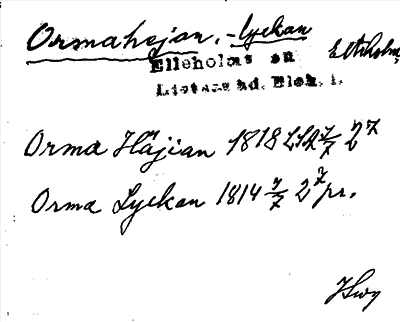 Ormahejan, -lyckan
Elleholms sn
Listers hd. Blek. l.
Orma Häjian 1818 LSk 7/7 2 7
Orma Lyckan 1814 7/7 2 7 pr.